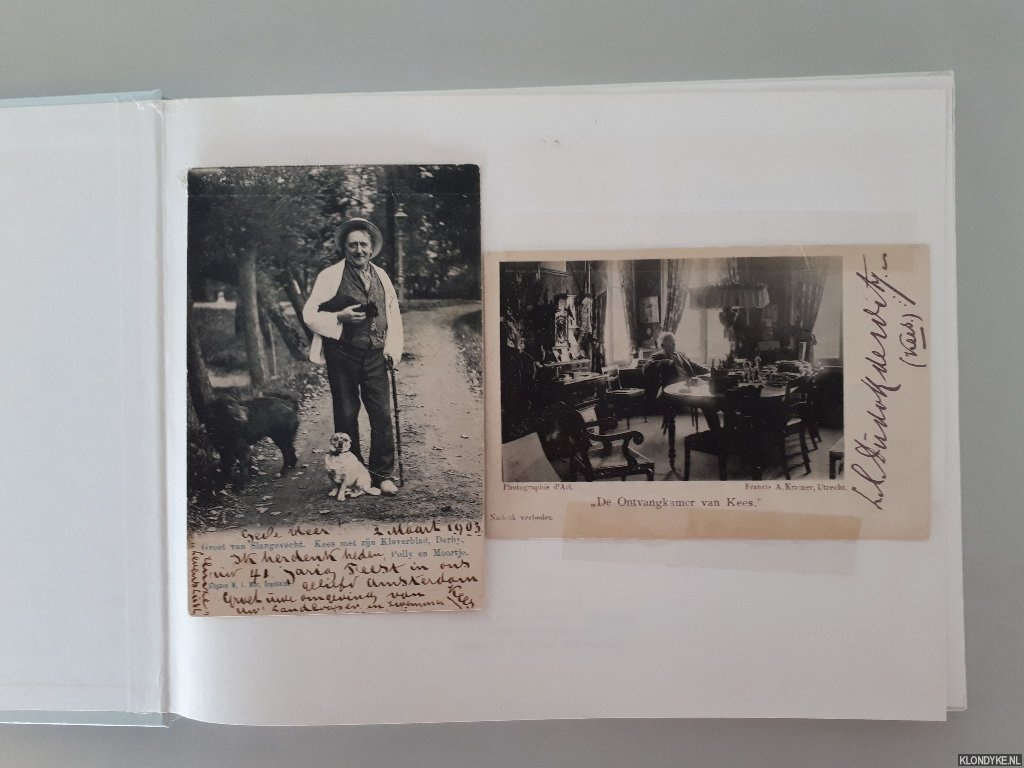 Geele Heer 2 Maart 1903
Groet van Slangevecht. Kees met zijn Klaverblad, Derby,
Polly en Moortje.
Ik herdenk heden
uw 41 Jarig Feest in ons
gelifd Amsterdam
Groet uwe omgeving van
uw Landlooper in
Kees
Photographie d'Art.
Francis A. Kramer, Utrecht.
„De Ontvangkamer van Kees."
Nadruk verboden
(Kees.)
KLONDYKE.NL